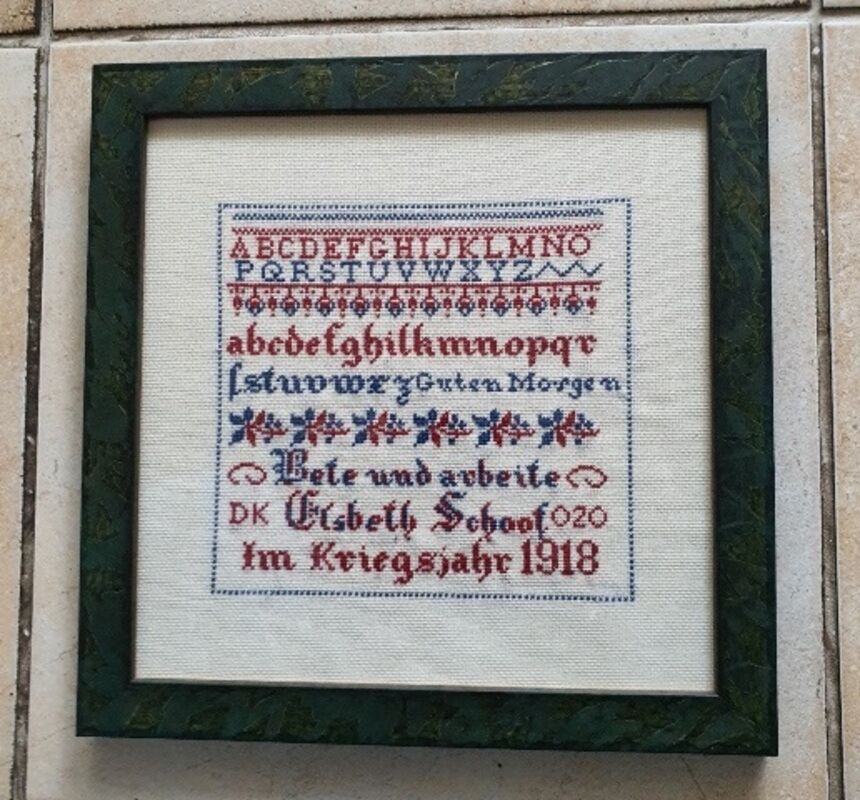 ABCDEFGHIJKLMNO
PQRSTUVWXYZ
abcdefghilkmnopqr
ſstuvwxyz Guten Morgen
Bete und arbeite
DK Elsbeth Schoof 020
Im Kriegsjahr 1918